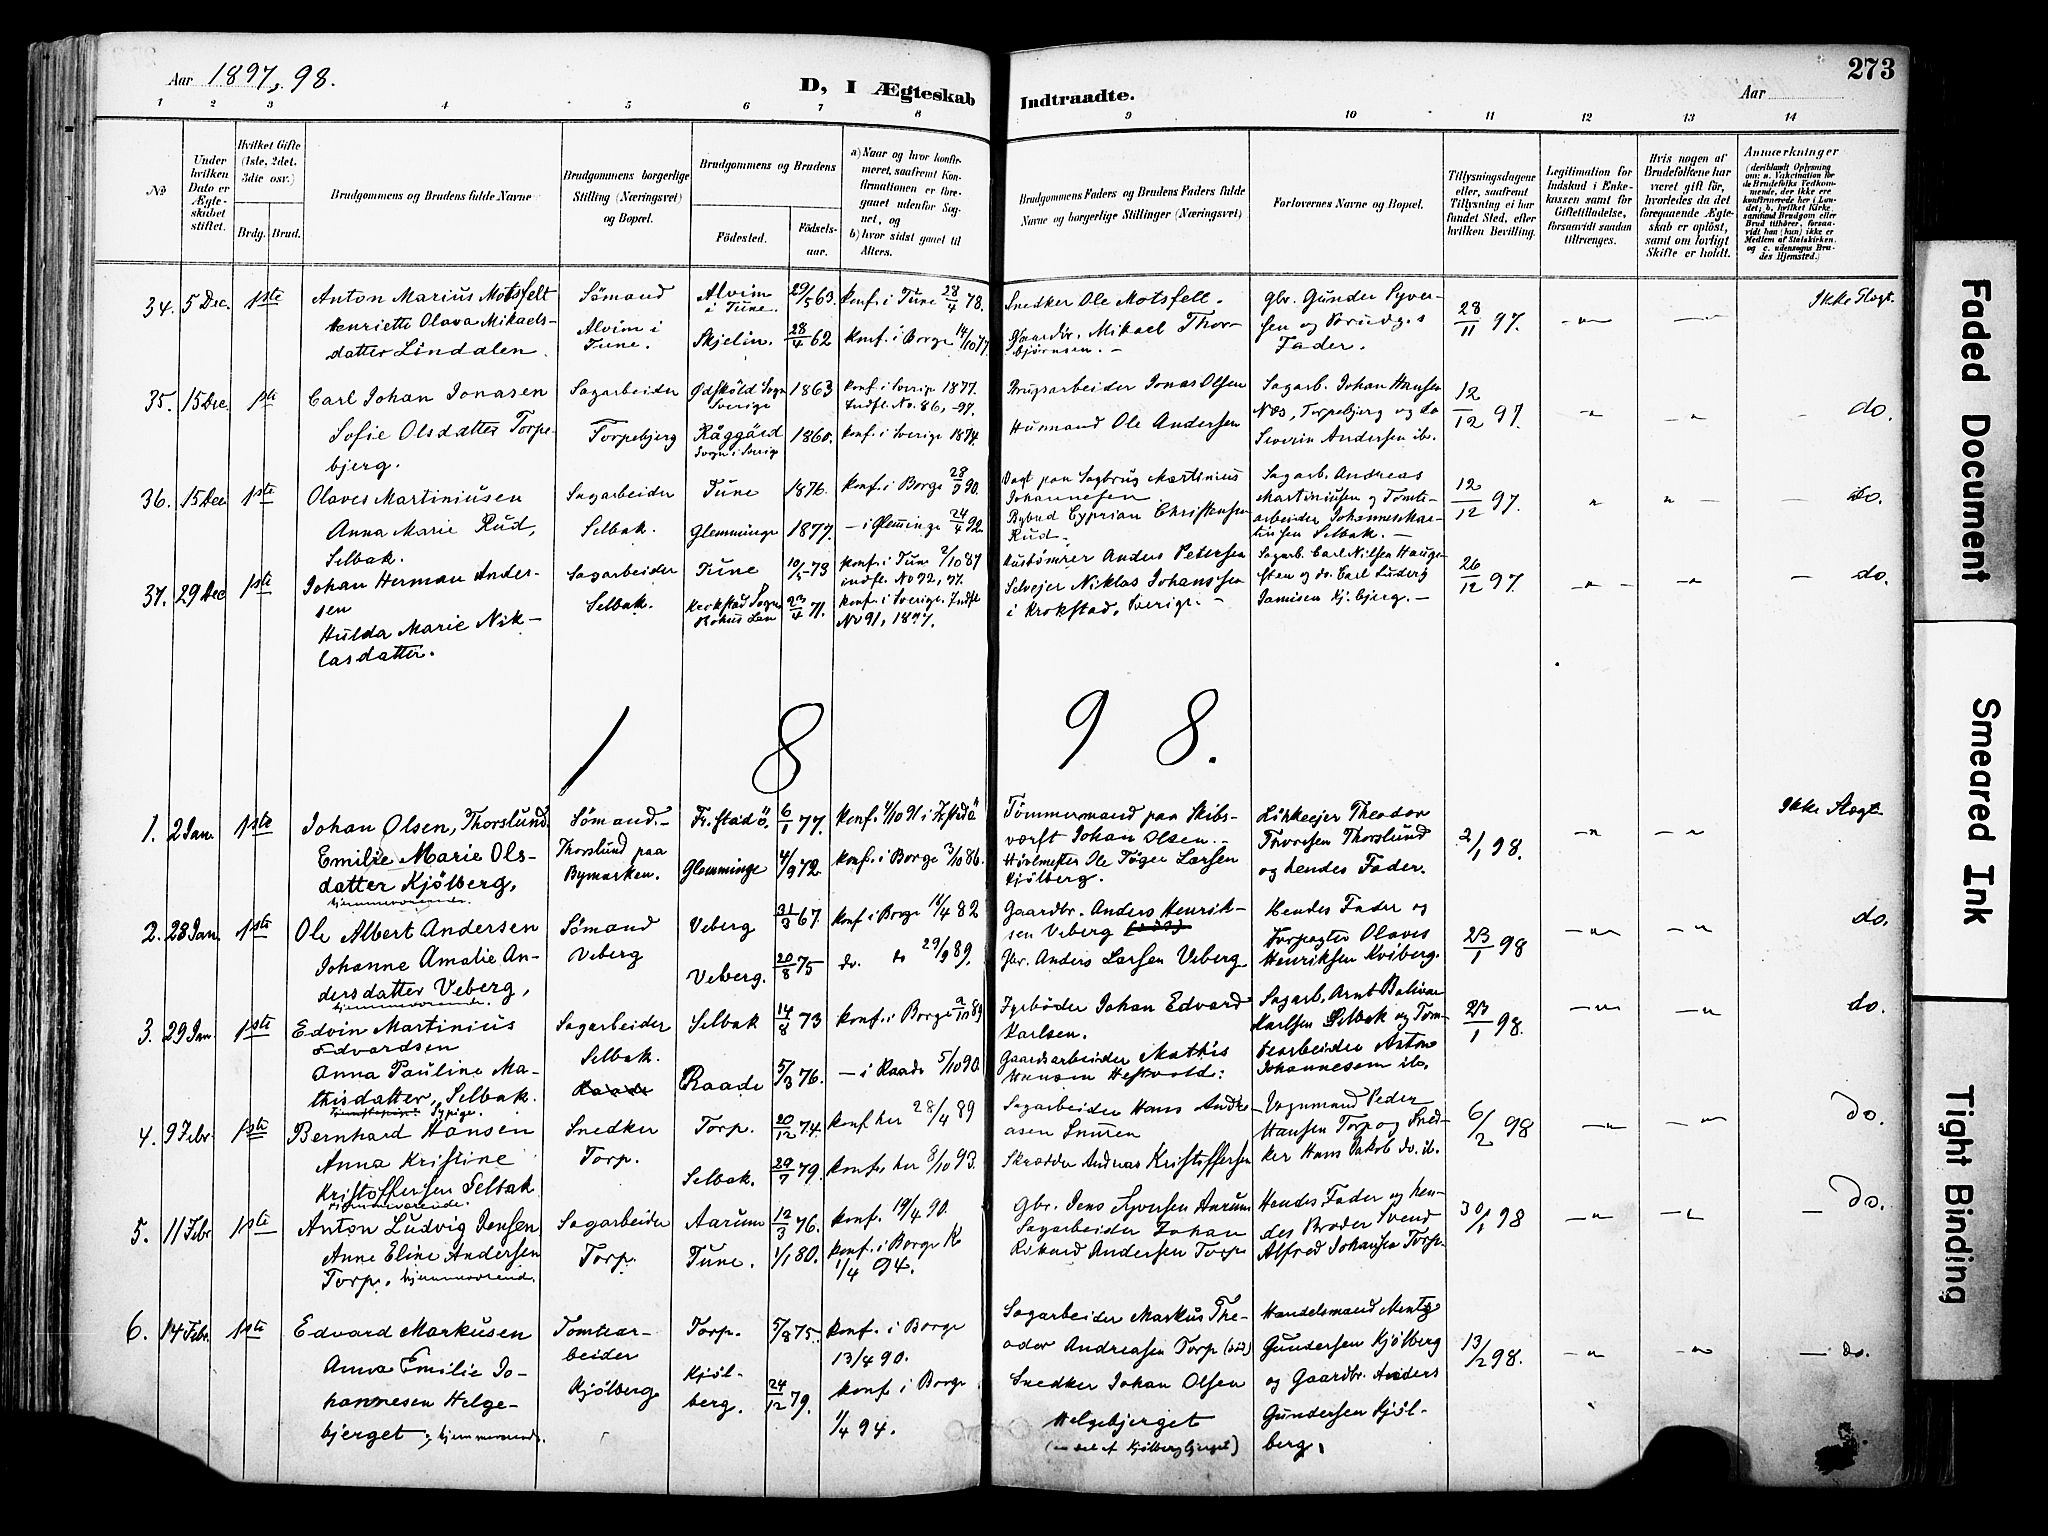 Aar 1897, 98.
D, I Ægteskab Indtraadte.
273
Aar
1 2 3 4 5 6 7 8 9 10 11 12 13 14
No
Under hvilken Dato er Ægteskabet stiftet.
Hvilket Gifte (1ste, 2det, 3die osv.)
Brdg. Brud.
Brudgommens og Brudens fulde Navne
Brudgommens borgerlige Stilling (Næringsvei) og Bopæl.
Brudgommens og Brudens
Fødested. Fødselsaar.
a) Naar og hvor konfirmeret, saafremt Konfirmationen er foregaaet udenfor Sognet, og
b) hvor sidst gaaet til Alters.
Brudgommens Faders og Brudens Faders fulde Navne og borgerlige Stillinger (Næringsvei)
Forlovernes Navne og Bopæl.
Tillysningsdagene eller, saafremt Tillysning ei har fundet Sted, efter hvilken Bevilling.
Legitimation for Indskud i Enkekassen samt for Giftetilladelse, forsaavidt saadan tiltrænges.
Hvis nogen af Brudefolkene har været gift før, hvorledes da det foregaaende Ægteskab er opløst, samt om lovligt Skifte er holdt.
Anmærkninger
34. 5 Dec. 1ste Anton Marius Motsfelt Sømand Alvim i Tune. 29/5 63. Konf. i Tune 28/4 78. Snedker Ole Motsfelt. Gbr. Gunder Syversen og Brudges Fader. 28/11 97. Ikke Slegt.
Henriette Olava Mikaelsdatter Lindalen. Alvim i Tune. Skjelin. 28/4 62 Konf. i Borge 14/10 77. Gaardbr. Mikael Thorbjørnsen. —
35. 15 Dec. 1ste Carl Johan Jonasen Sagarbeider Ødsköld Sogn Sverige 1863 konf. i Sverige 1877. Indfl. No. 86, -97. Brugsarbeider Jonas Olsen Sagarb. Johan Hansen Næs, Torpebjerg og do Severin Andersen ib. 12/12 97. do.
Sofie Olsdatter Torpebjerg. Torpebjerg Råggärd Sogn i Sverige 1860. konf. i Sverige 1874. Husmand Ole Andersen
36. 15 Dec 1ste Olaves Martiniusen Sagarbeider Tune 1876. Konf. i Borge 28/9 90. Vagt paa Sagbrug Martinius Johannesen Sagarb. Andreas Martiniusen og Tomtearbeider Johannes Martinsen Selbak. — 12/12 97. do.
Anna Marie Rud, Selbak. Selbak. Glemminge 1877. — i Glemminge 24/4 92. Bybud Cyprian Christensen Rud.
37. 29 Dec 1ste Johan Herman Andersen Sagarbeider Tune 10/5 73 konf. i Tune 2/10 87 indfl. No 92, 97. Anders Petersen Sagarb. Carl Nilsen Haugesten og do. Carl Ludvig Jamisen Kj.bjerg. — 26/12 97. do.
Hulda Marie Niklasdatter. Selbak. Krokstad Sogn Bohus Len 23/4 71. konf. i Sverige. Indfl No 91, 1897. Selvejer Niklas Johansen i Krokstad, Sverige. —
1 8 9 8.
1. 2 Jan. 1ste Johan Olsen, Thorslund. Sømand. — Fr.stad. 6/1 77. Konf. 4/10 91 i Fr.stad Tømmermand paa Skibsværft Johan Olsen. — Theodor Thorslund og hendes Fader. 2/1 98. Ikke Slegt.
Emilie Marie Olsdatter Kjölberg, hjemmeværende. Thorslund paa Bymarken. Glemminge 4/9 72. konf. i Borge 3/10 86. Høvlmester Ole Tøger Larsen Kjölberg.
2. 28 Jan. 1ste Ole Albert Andersen Sømand Veberg Veberg 31/3 67. konf i Borge 16/4 82 Gaardbr. Anders Henriksen Veberg Hendes Fader og Forpagter Olaves Henriksen Kviberg. 23/1 98 do.
Johanne Amalie Andersdatter Veberg, hjemmeværende. Veberg. 20/8 75 do. do 29/9 89. Gbr. Anders Larsen Veberg
3. 29 Jan. 1ste Edvin Martinius Edvardsen Sagarbeider Selbak. Selbak 14/8 73 konf. i Borge /10 89 Fyrbøder Johan Edvard Karlsen. Sagarb. Arnt Karlsen Selbak og Tomtearbeider Anton Johannesen ib. 23/1 98. do.
Anna Pauline Mathisdatter, Selbak. Sypige. Raade Raade 5/3 76. — i Raade 5/10 90. Gaardsarbeider Mathis Hansen
4. 9 Febr. 1ste Bernhard Hansen Snedker Torp. Torp. 20/12 74. Konf her 28/4 89 Sagarbeider Hans Andreasen Vognmand Peder Hansen Torp og Snedker Hans Jakob do. ib. 6/2 98 do.
Anna Kristine Kristoffersen Selbak hjemmeværende. Selbak. 29/7 79. konf. her 8/10 93. Skrædder Andreas Kristoffersen
5. 11 Febr 1ste Anton Ludvig Jensen Sagarbeider Aarum 12/3 76. konf. 19/4 90. Gbr. Jens Syversen Aarum Hendes Fader og hendes Broder Svend Alfred Johansen Torp. 30/1 98 do.
Anne Eline Andersen Torp, hjemmeværend. Torp. Tune. 1/1 80. konf. i Borge K 1/4 94. Sagarbeider Johan Rikard Andersen Torp
6. 14 Febr. 1ste Edvard Markusen Tomtearbeider Torp. 5/8 75. konf. i Borge 13/4 90. Sagarbeider Markus Theodor Andreasen Torp (död) Handelsmand Mentz Gundersen Kjölberg og Gaardbr. Anders Gundersen Kjölberg. 13/2 98. do.
Anna Emilie Johannesen Helgebjerget, hjemmeværende. Kjölberg Kjölberg. 24/12 79. konf. i Borge 1/4 94. Snedker Johan Olsen Helgebjerget (en del af Kjölbergbjerget)
Faded Document
Smeared Ink
Tight Binding